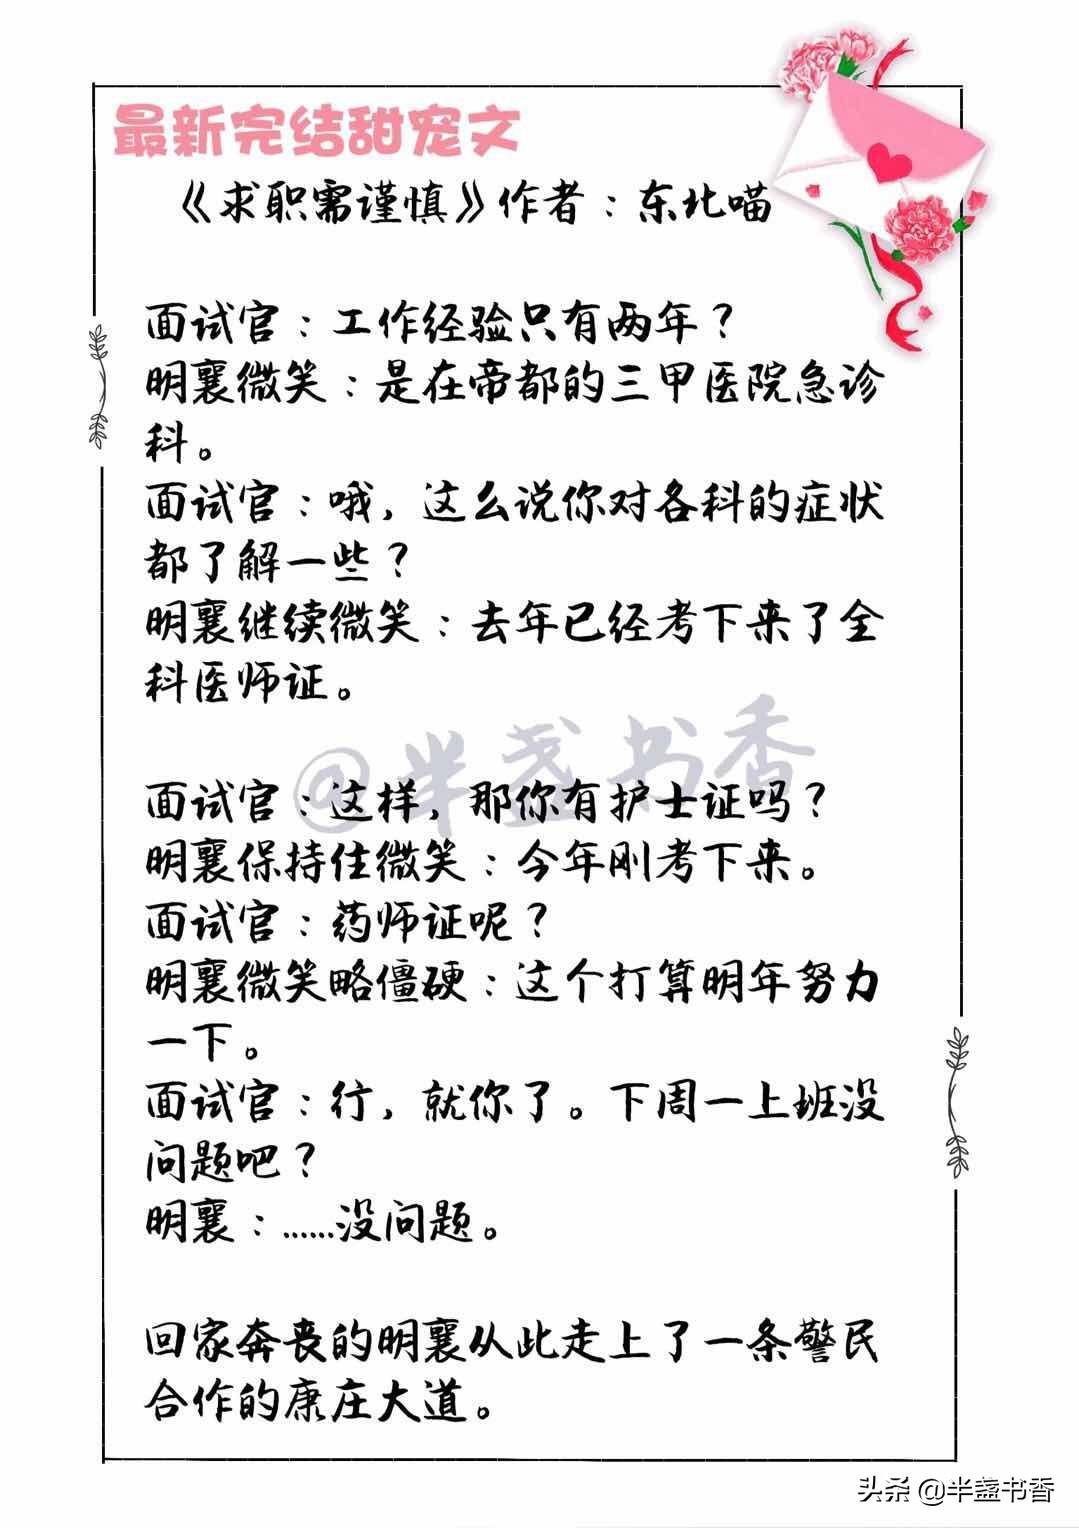 最新完结甜宠文
《求职需谨慎》作者：东北喵
面试官：工作经验只有两年？
明襄微笑：是在帝都的三甲医院急诊
科。
面试官：哦，这么说你对各科的症状
都了解一些？
明襄继续微笑：去年已经考下来了全
科医师证。
@半盏书香
面试官：这样，那你有护士证吗？
明襄保持住微笑：今年刚考下来。
面试官：药师证呢？
明襄微笑略僵硬：这个打算明年努力
一下。
面试官：行，就你了。下周一上班没
问题吧？
明襄：……没问题。
回家奔丧的明襄从此走上了一条警民
合作的康庄大道。
头条 @半盏书香